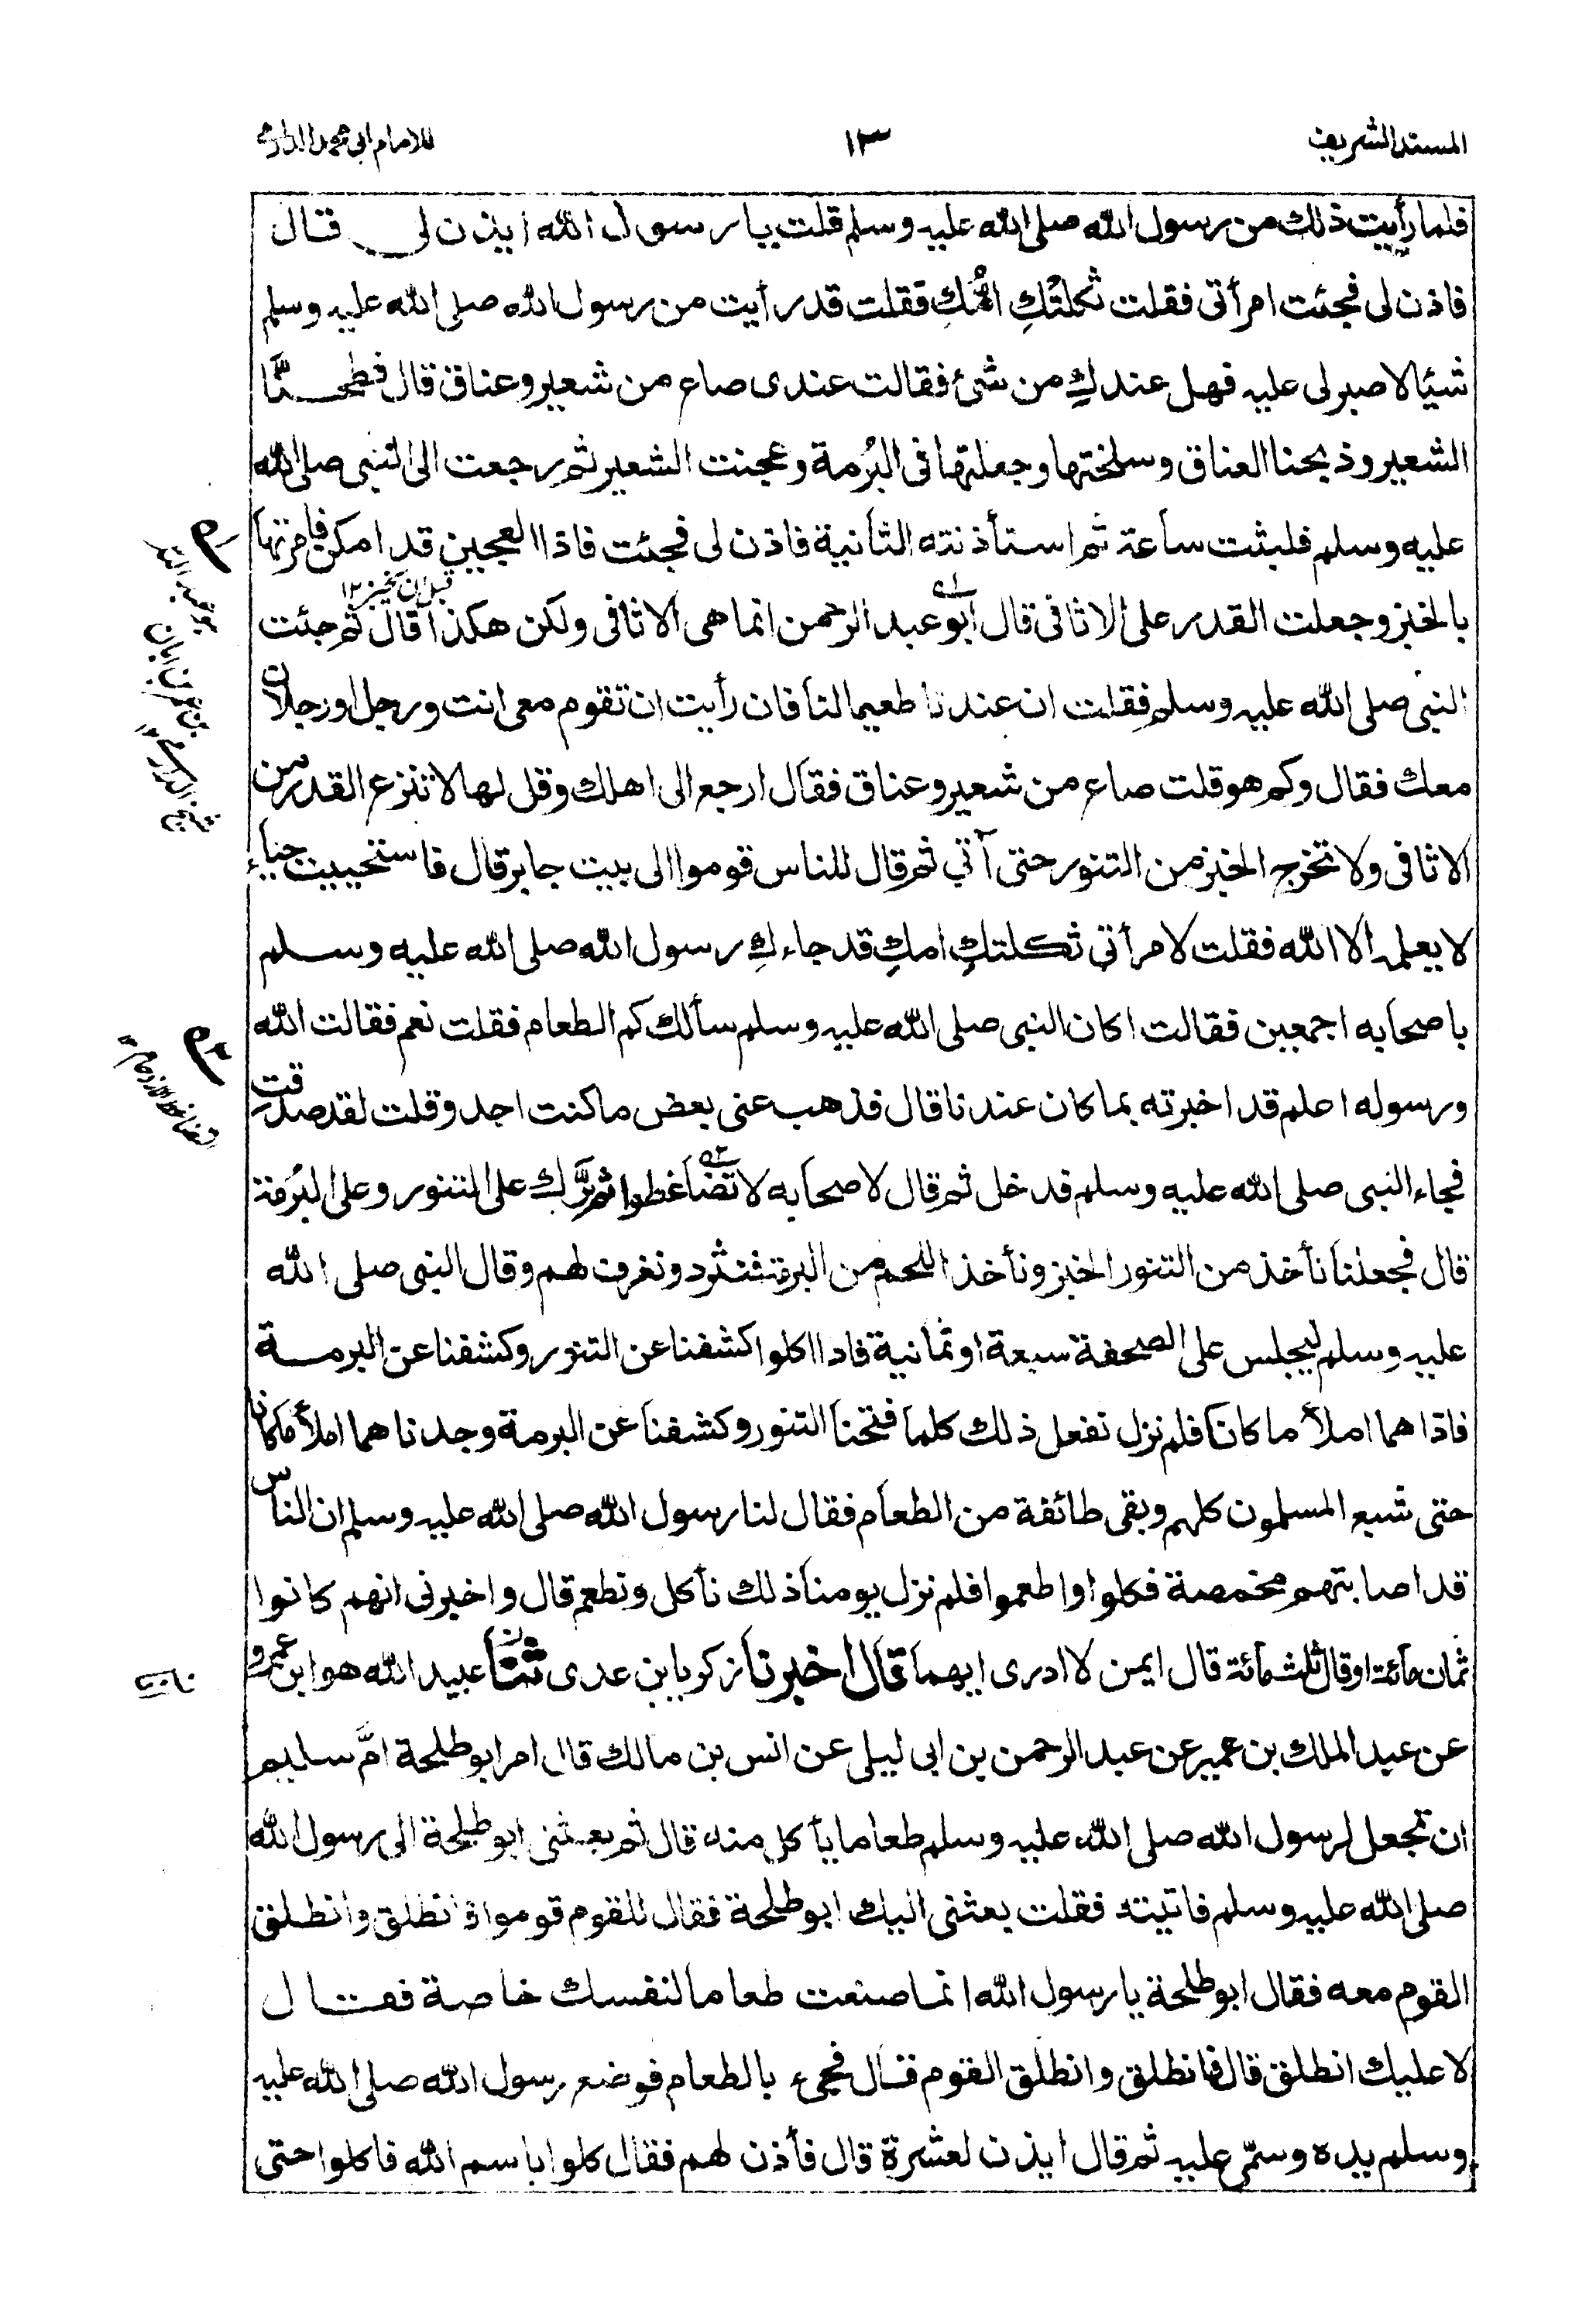 المسند الشريف
١٣
للامام ابي محمد الدارمي
فلما رأيت ذلك من رسول الله صلى الله عليه وسلم قلت يا رسول الله ايذن لى قال
فاذن لى فجئت امرأتى فقلت ثكلتكِ امُّكِ فقلت قد رأيت من رسول الله صلى الله عليه وسلم
شيئا لا صبر لى عليه فهل عندكِ من شئ فقالت عندى صاع من شعير وعناق قال فطحنَّا
الشعير وذبحنا العناق وسلختها وجعلتها فى البُرمة وعجنت الشعير ثم رجعت الى النبى صلى الله
عليه وسلم فلبثت ساعة ثم استأذنته الثانية فاذن لى فجئت فاذا العجين قد امكن فامرتها
قبل ان يخبز ١٢
بالخبز وجعلت القدر على الاثافى قال ابو عبد الرحمن انما هى الاثافى ولكن هكذا قال ثم جئت
النبى صلى الله عليه وسلم فقلت ان عندنا طعيما لنا فان رأيت ان تقوم معى انت ورجل اورجلان
معك فقال وكم هو قلت صاع من شعير وعناق فقال ارجع الى اهلك وقل لها لا تنزع القدر من
الاثافى ولا تخرج الخبز من التنور حتى آتي ثم قال للناس قوموا الى بيت جابر قال فاستحييت حياء
لا يعلمه الا الله فقلت لامرأتي ثكلتكِ امكِ قد جاءكِ رسول الله صلى الله عليه وسلم
باصحابه اجمعين فقالت اكان النبى صلى الله عليه وسلم سألك كم الطعام فقلت نعم فقالت الله
ورسوله اعلم قد اخبرته بما كان عندنا قال فذهب عنى بعض ما كنت اجد وقلت لقد صدقت
فجاء النبى صلى الله عليه وسلم فدخل ثم قال لاصحابه لا تضاغطوا ثم برَّك على التنور وعلى البُرمة
قال فجعلنا نأخذ من التنور الخبز ونأخذ اللحم من البرمة فنثرد ونغرف لهم وقال النبى صلى الله
عليه وسلم ليجلس على الصحفة سبعة او ثمانية فاذا اكلوا كشفنا عن التنور وكشفنا عن البرمة
فاذا هما املأ ما كانا فلم نزل نفعل ذلك كلما فتحنا التنور وكشفنا عن البرمة وجدناهما املأ ما كانا
حتى شبع المسلمون كلهم وبقى طائفة من الطعام فقال لنا رسول الله صلى الله عليه وسلم ان الناس
قد اصابتهم مخمصة فكلوا واطعموا فلم نزل يومنا ذلك نأكل ونطعم قال واخبرنى انهم كانوا
ثمان مائة او قال ثلثمائة قال ايمن لا ادرى ايهما قال اخبرنا زكريا بن عدى ثنا عبيد الله هو ابن عمرو
عن عبد الملك بن عمير عن عبد الرحمن بن ابى ليلى عن انس بن مالك قال امر ابو طلحة امَّ سليم
ان تجعل لرسول الله صلى الله عليه وسلم طعاما يأكل منه قال ثم بعثنى ابو طلحة الى رسول الله
صلى الله عليه وسلم فاتيته فقلت بعثنى اليك ابو طلحة فقال للقوم قوموا فانطلق وانطلق
القوم معه فقال ابو طلحة يا رسول الله انما صنعت طعاما لنفسك خاصة فقال
لا عليك انطلق قال فانطلق وانطلق القوم قال فجئ بالطعام فوضع رسول الله صلى الله عليه
وسلم يده وسمّى عليه ثم قال ايذن لعشرة قال فأذن لهم فقال كلوا باسم الله فاكلوا حتى